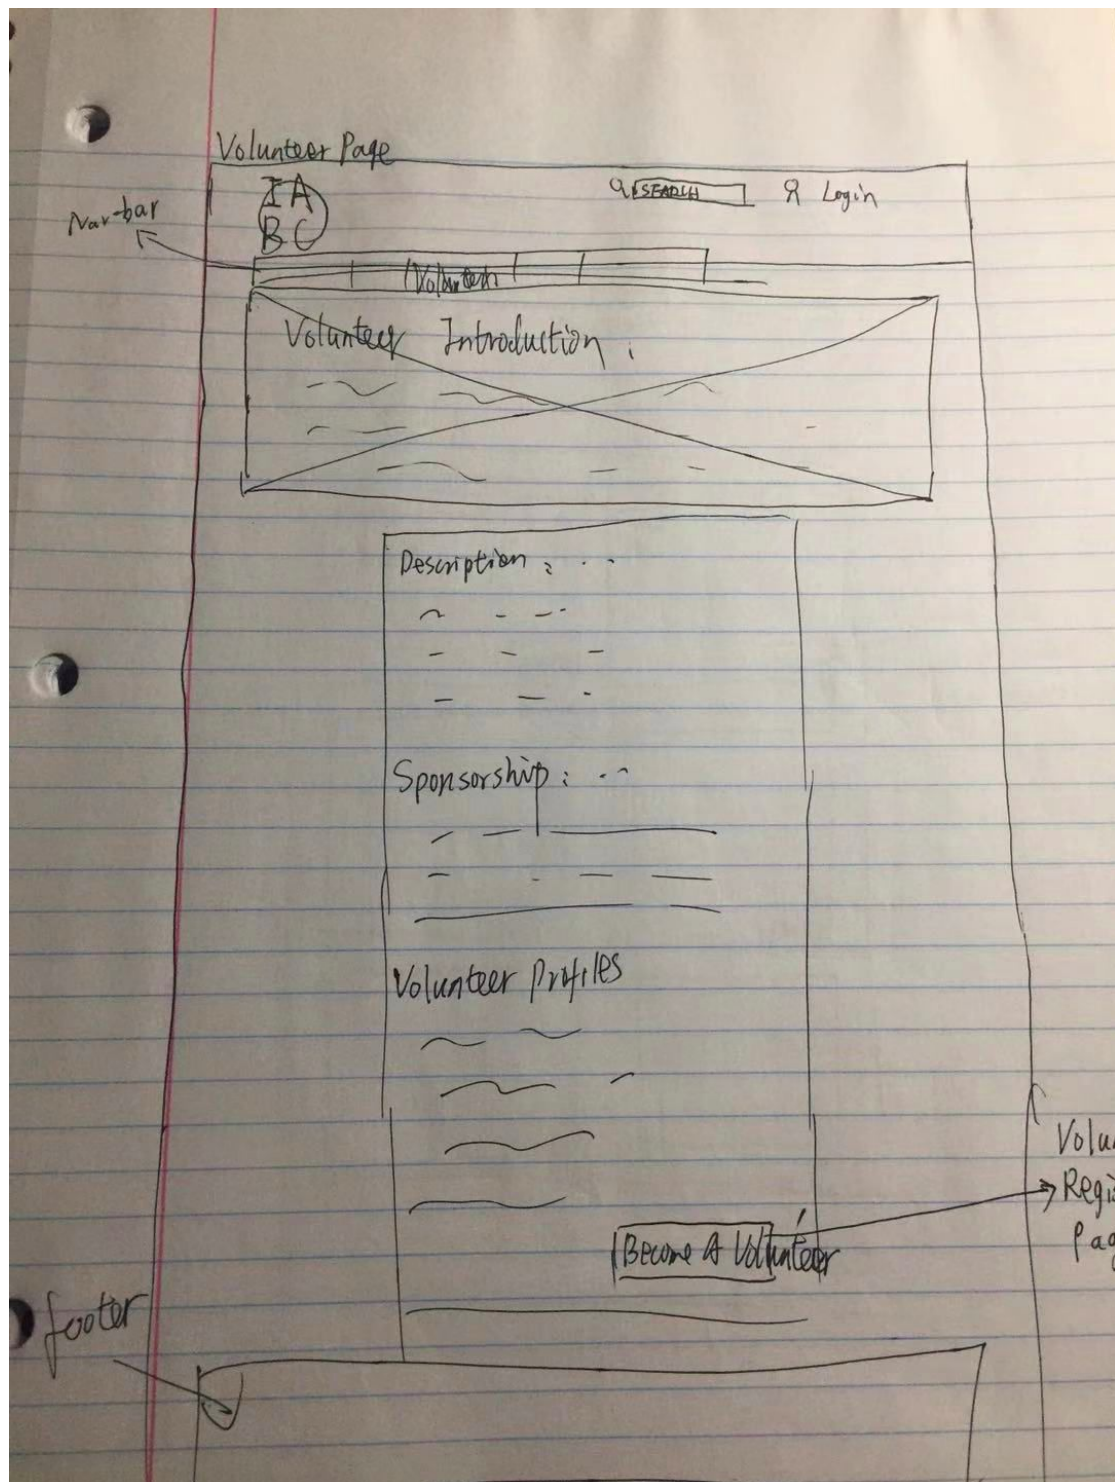 Volunteer Page
IA
BC
SEARCH
Login
Nav-bar
Volunteer
Volunteer Introduction
Description :
Sponsorship :
Volunteer Profiles
Become A Volunteer
Volu
Regis
Pag
footer